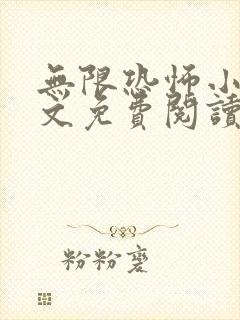 無限恐怖小
文免費閱讀
粉粉麼